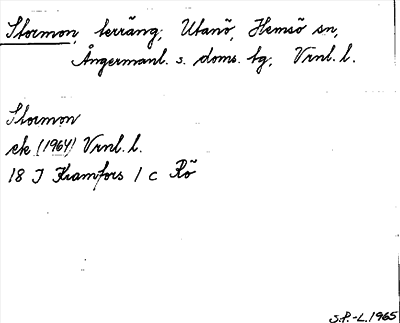 Stormon, terräng, Utanö, Hemsö sn,
Ångermanl. s. doms. tg, Vrnl. l.
Stormon
ek (1964) Vrnl. l.
18 J Kramfors 1 c Rö
S.P.-L. 1965